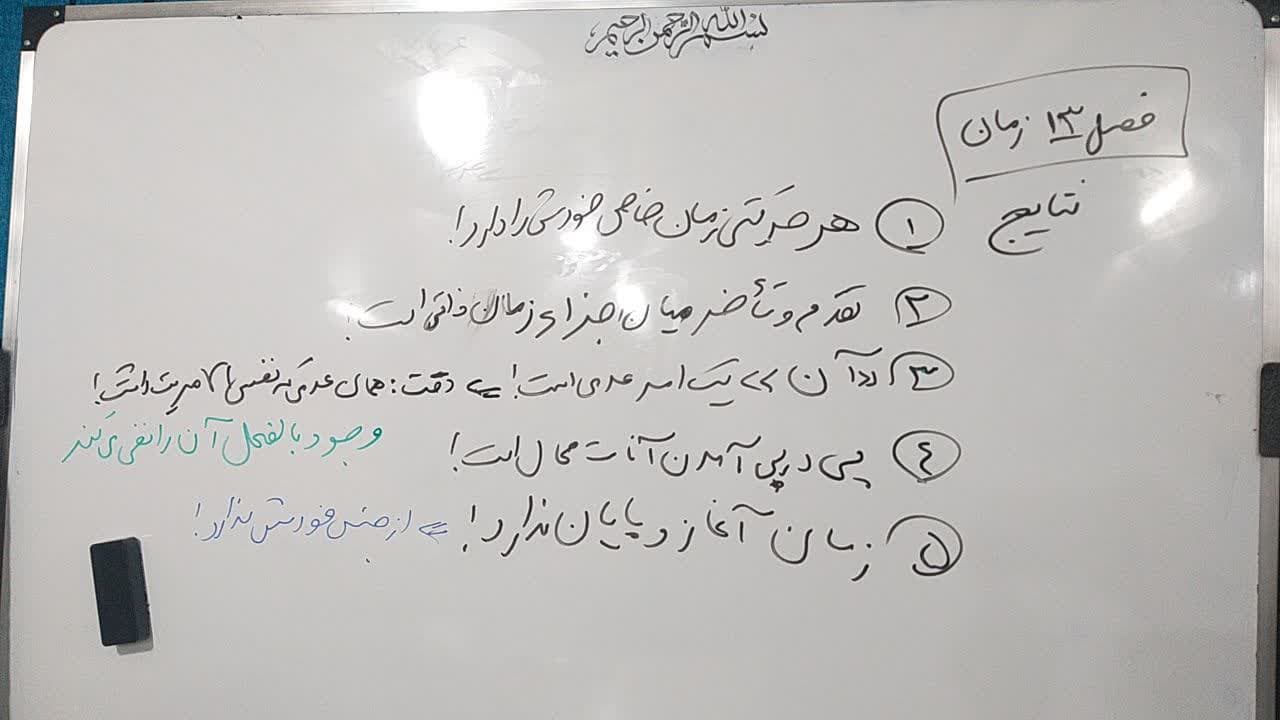 بسم الله الرحمن الرحیم
فصل ۱۳ زمان
نتایج
۱ هر حرکتی زمان خاص خودش را دارد!
۲ تقدم و تأخر میان اجزای زمان ذاتی است!
۳ "آن" یک امر عدمی است! ⇐ دقت: همان عدمی که نفس الامریت داشت!
وجود بالفعل آن را نفی می‌کند
۴ پی در پی آمدن آنات محال است!
۵ زمان آغاز و پایان ندارد! ⇐ از جنس خودش ندارد!